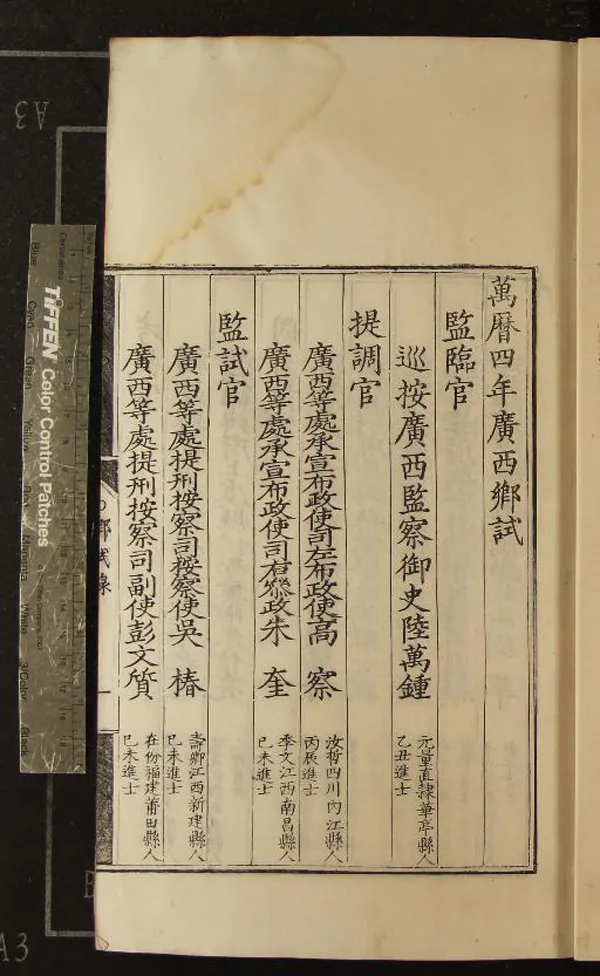 萬曆四年廣西鄉試
監臨官
巡按廣西監察御史陸萬鍾
元量直隸華亭縣人
乙丑進士
提調官
廣西等處承宣布政使司左布政使高 察
汝哲四川內江縣人
丙辰進士
廣西等處承宣布政使司右叅政朱 奎
季文江西南昌縣人
已未進士
監試官
廣西等處提刑按察司按察使吳 椿
壽卿江西新建縣人
已未進士
廣西等處提刑按察司副使彭文質
在份福建莆田縣人
已未進士
鄉試錄
一
A3
TIFFEN Color Control Patches
Blue
Cyan
Green
Yellow
Red
Magenta
White
3/Color
Black
Centimetres
A3